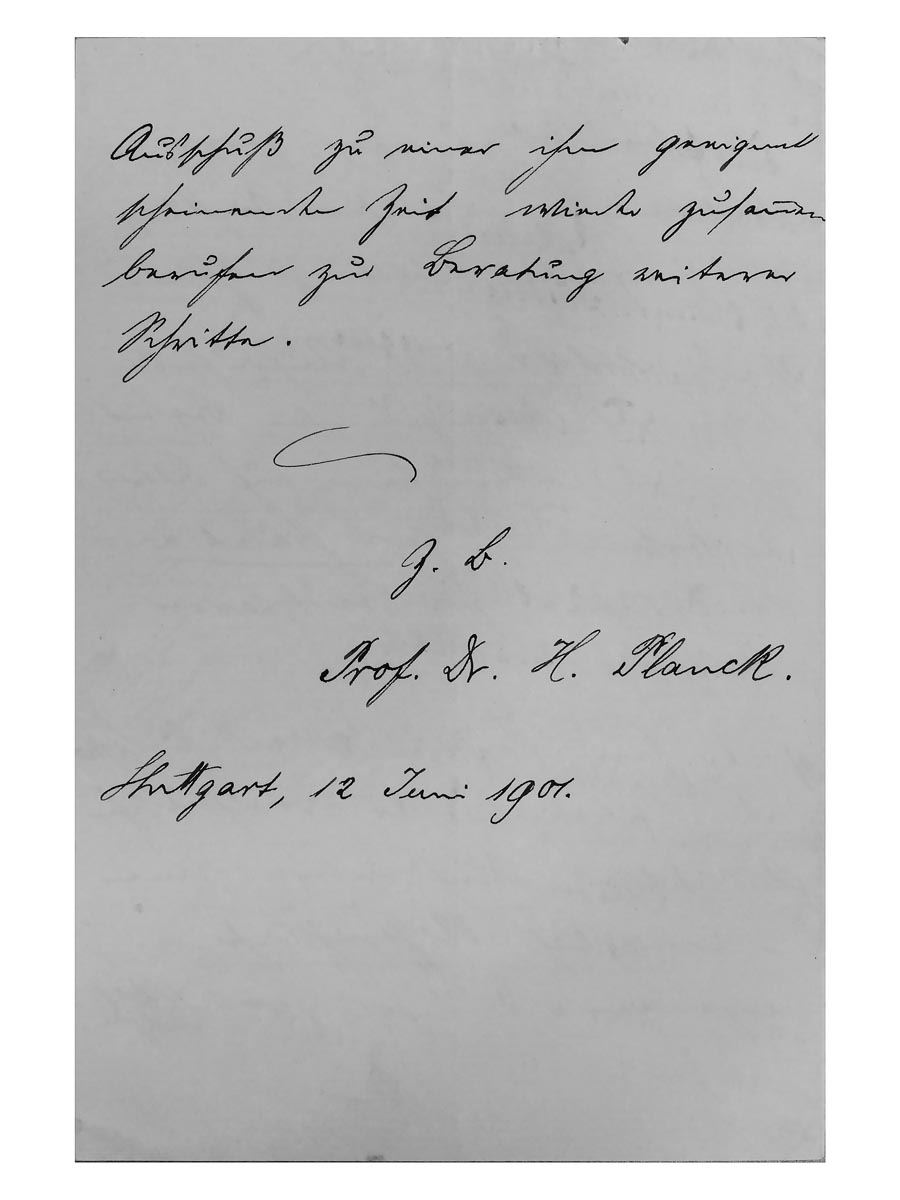 Ausschuß zu einer ihm geeignet
scheinenden Zeit wieder zusammen
berufen zur Beratung weiterer
Schritte.
Z. B.
Prof. Dr. H. Planck.
Stuttgart, 12 Juni 1901.